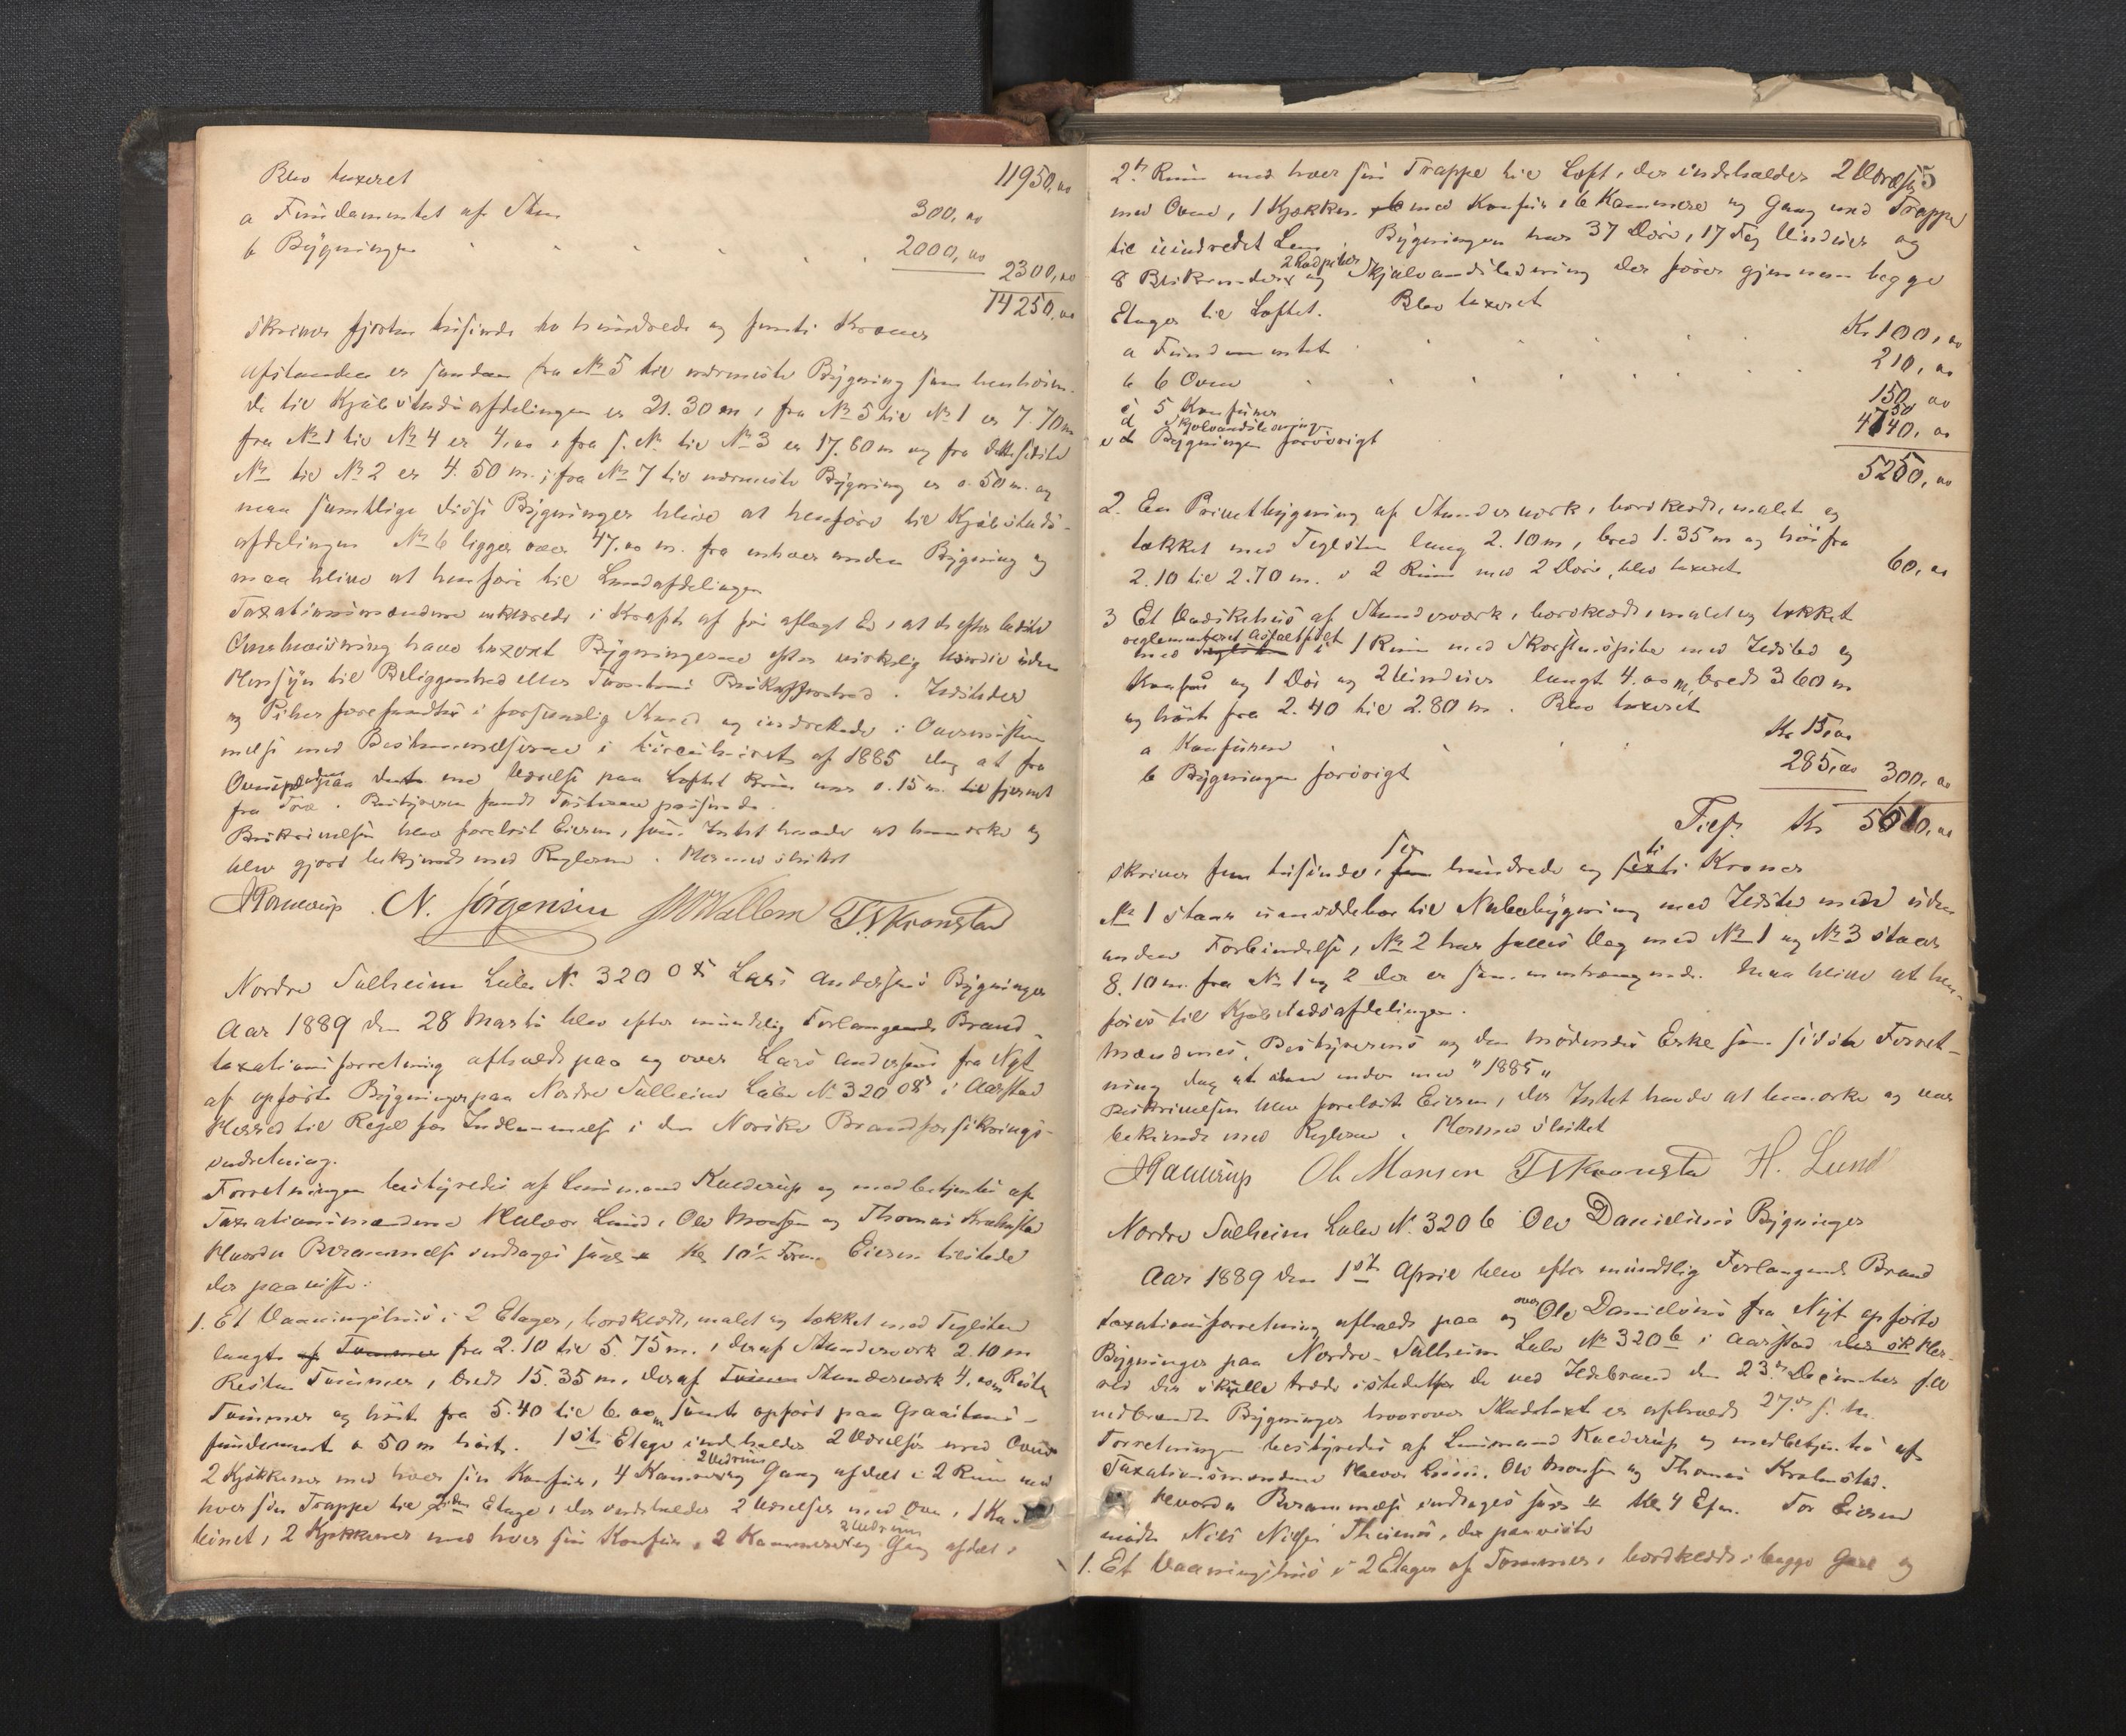 Blev taxeret 11950,00
a Fundamentet af Sten 300,00
b Bygningen 2000,00
2300,00
14250,00
skriver fjorten tusinde to hundrede og femti Kroner
Afstanden er saadan fra No 5 til nærmeste Bygning som henhören-
de til Kjøbstadsafdelingen er 21.30 m, fra No 5 til No 1 er 7.70 m
fra No 1 til No 4 er 4,00, fra s. No. til No 3 er 17.60 m og fra dette sidste
No til No 2 er 4.50 m.; fra No 7 til nærmeste Bygning er 0.50 m. og
maa samtlige disse Bygninger blive at henføre til Kjøbstads-
afdelingen No 6 ligger over 47,00 m. fra enhver anden Bygning og
maa blive at henføre til Landafdelingen
Taxationsmændene erklærede i Kraft af før aflagt Ed, at de efter bedste
Overbevisning have taxeret Bygningerne efter virkelig Værdie uden
Hensyn til Beliggenhed eller Brugbarhed. Ildsteder
og Piber forefandtes i forsvarlig Stand og indrettede i Overensstem-
melse med Bestemmelserne i Circulairet af 1885 dog at fra
Ovnspladen paa det ene Værelse paa Loftet kun var 0.15 m. til fjernet
fra Træ. Bestyreren fandt Taksterne passende.
Beskrivelsen blev forelæst Eieren, som Intet havde at bemærke og
blev gjort bekjendt med Reglerne. Hermed sluttet
N. Jörgensen J M Wallem T. Kronstad
Nordre Solheim Løbe No. 320 08 Lars Andersens Bygninger
Aar 1889 den 28 Marts blev efter mundtlig Forlangende Brand-
taxationsforretning afholdt paa og over Lars Andersens fra Nyt
af opførte Bygninger paa Nordre Solheim Løbe No 320 08 i Aarstad
Herred til Regel for Indlemmelse i den Norske Brandforsikrings-
indretning.
Forretningen bestyredes af Lensmand og medbetjentes af
Taxationsmændene Halvor Lund, Ole Monsen og Thomas Kronstad
Hvordu Berammelse indtages Kl 10½ Form. Eieren tilstede
der paaviste:
1. Et Vaaningshus i 2 Etager, bordklædt, malet og tækket med Teglsten
langt af Tømmer fra 2.10 til 5.75 m., deraf Stenderværk 2.10 m
Resten Tømmer, bredt 15.35 m. deraf Stenderværk 4,00 m Resten
Tømmer og höit fra 5.40 til 6.00 m samt opført paa Graastens-
fundament 0.50 m höit. 1ste Etage indeholder 2 Værelser med Ovne
2 Kjøkkener med hver sin Komfur, 4 Kammere 2 Vedrum og Gang afdelt i 2 Rum med
hver sin Trappe til 2den Etage, der indeholder 2 Værelser med Ovn, 1 Ka-
binet, 2 Kjøkkener med hver sin Komfur, 2 Kammere 2 Vedrum og Gang afdelt i
5
2de Rum med hver sin Trappe til Loft, der indeholder 2 Værelser
med Ovne, 1 Kjøkken med Komfur, 6 Kammere og Gang med Trappe
til uindredet Lem. Bygningen har 37 Døre, 17 Fag Vinduer og
8 2 Vedpiber og Skyllevandsledning der fører gjennem begge
Etager til Loftet. Blev taxeret
a Fundamentet Kr 100,00
b 6 Ovne 210,00
c 5 Komfurer 150,00
d Skyllevandsledningen 50
e d Bygningen forøvrigt 4740,00
5250,00
2. En Privetbygning af Stenderværk, bordklædt, malet og
tækket med Teglsten lang 2.10 m, bred 1.35 m og höi fra
2.10 til 2.70 m. i 2 Rum med 2 Døre, blev taxeret 60,00
3 Et Vaskehus af Stenderværk, bordklædt, malet og tækket
med reglementeret Asfaltfilt i 1 Rum med Skorstenspibe med Ildsted og
Komfur og 1 Dør og 2 Vinduer langt 4.00 m, bredt 3.60 m
og höit fra 2.40 til 2.80 m. Blev taxeret
a Komfuren Kr 15,00
b Bygningen forøvrigt 285,00 300,00
Tils. Kr 5610,00
skriver fem tusinde, fem sex hundrede og sexti ti Kroner
No 1 staar umiddelbar til Nabobygning med Ildsted uden
anden Forbindelse, No 2 har fælles Væg med No 1 og No 3 staar
8.10 m. fra No 1 og 2 der er sammenhængende. Maa blive at hen-
føres til Kjøbstadsafdelingen.
Mændenes, Bestyrerens og den mødendes Erkl. som sidste Forret-
ning dog at den ender med "1885"
Beskrivelsen blev forelæst Eieren, der Intet havde at bemærke og var
bekjendt med Reglerne. Hermed sluttet
Ole Monsen T Kronstad H. Lund
Nordre Solheim Løbe No. 320 b Ole Danielsens Bygninger
Aar 1889 den 1ste April blev efter mundtlig Forlangende Brand
taxationsforretning afholdt paa og over Ole Danielsens fra Nyt opførte
Bygninger paa Nordre-Solheim Løbe No 320 b i Aarstad Her-
red der skulle træde istedetfor de ved Ildebrand den 23de December f. A
nedbrændte Bygninger hvorover Skadetaxt er afholdt 27de s. M.
Forretningen bestyredes af Lensmand og medbetjentes af
Taxationsmændene Halvor Lund, Ole Monsen og Thomas Kronstad.
Hvordu Berammelse indtages Kl 4 Efm. For Eieren
mødte Nils Nilsen, der paaviste
1. Et Vaaningshus i 2 Etager af Tømmer, bordklædt, begge Gavle og